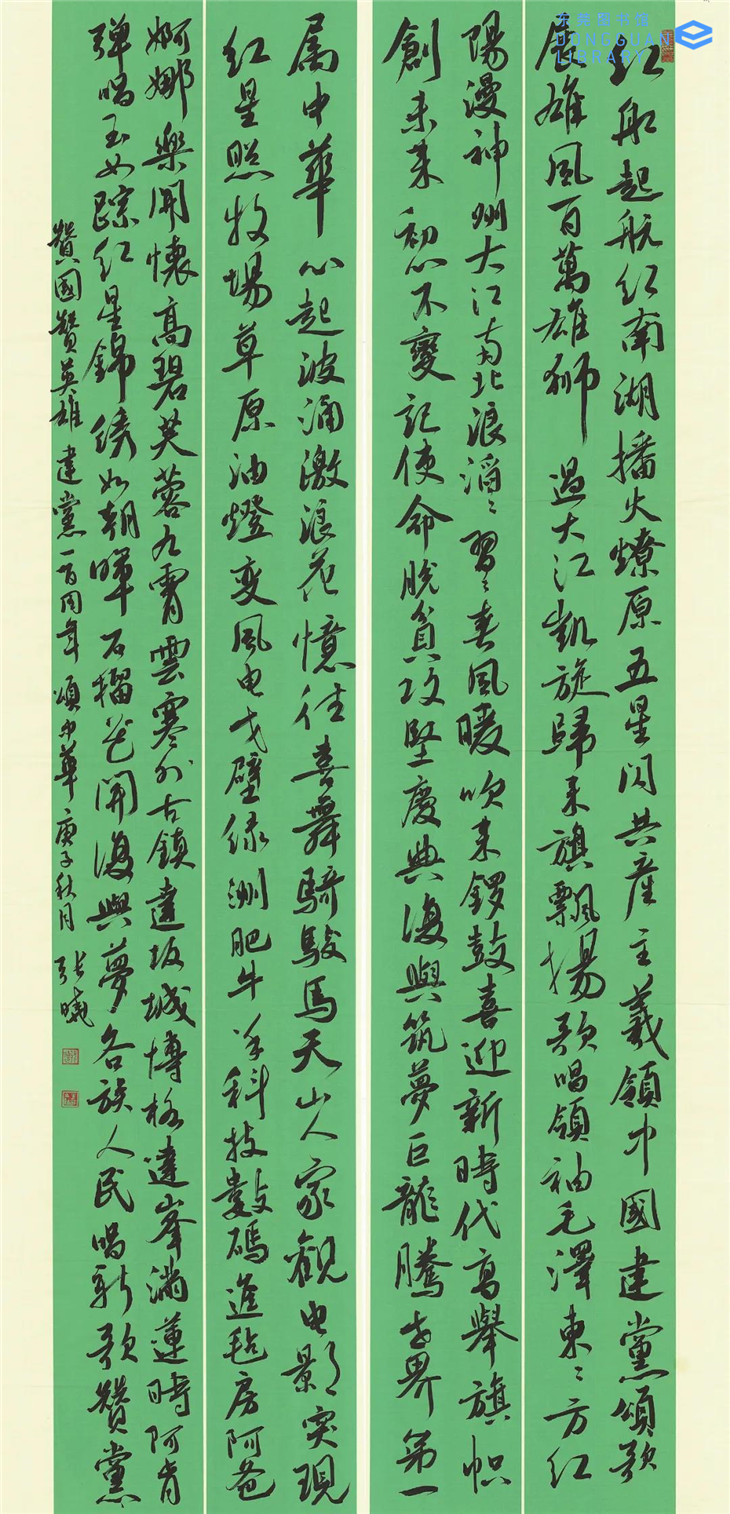 东莞图书馆
DONGGUAN
LIBRARY
红船起航红南湖播火燎原五星闪共产主義領中國建黨頌歌
展雄風百萬雄獅過大江凱旋歸来旗飘揚歌唱領袖毛澤東〻方红
陽漫神州大江南北浪滔〻習〻春風暖吹来鑼鼓喜迎新時代高舉旗帜
創未来初心不變記使命脱貧攻堅慶典復興筑夢巨龍騰世界第一
属中華心起波涌激浪花憶往喜舞騎駿馬天山人家觀电影突現
红星照牧場草原油燈变風电戈壁绿洲肥牛羊科技數碼進毡房阿爸
婀娜樂開懷高碧芙蓉九霄雲寒外古鎮達坂城博格達峯满蓮時阿肯
弹唱玉女踪红星錦绣如朝暉石榴花開復興夢各族人民唱新歌贊黨
贊國贊英雄建黨一百周年頌中華庚子秋月张曉